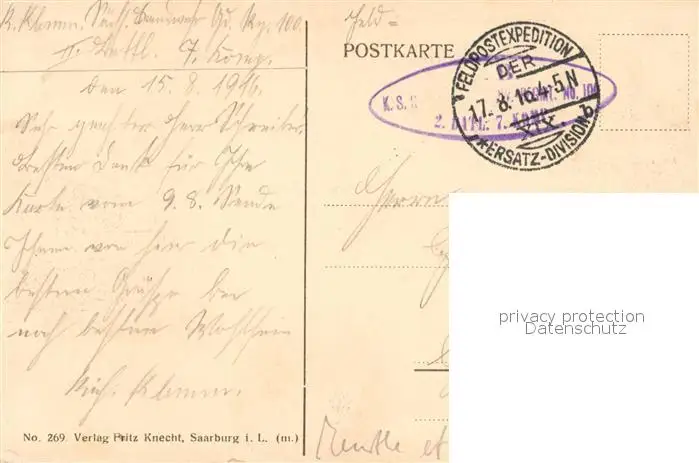 R. Klemm. Sächs. Landwehr Inf. Rg. 100.
II. Battl. 7. Komp.
den 15.8.1916.
Sehr geehrter Herr Schreiber
Besten Dank für Ihre
Karte vom 9.8. Sende
Ihnen von hier die
besten Grüße bei
noch besten Wohlsein
Rich. Klemm.
No. 269. Verlag Fritz Knecht, Saarburg i. L. (m.)
Feld=
POSTKARTE
FELDPOSTEXPEDITION
DER
17.8.16.4-5N
XIX.
*ERSATZ-DIVISION b
K.S.
No. 100
2. BATL. 7. KOMP.
Herrn
privacy protection
Datenschutz